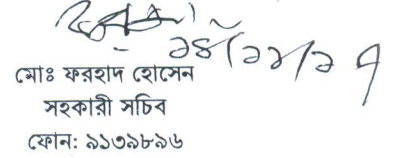 ১৪/১১/১৭
মোঃ ফরহাদ হোসেন
সহকারী সচিব
ফোন: ৯১৩৯৮৯৬